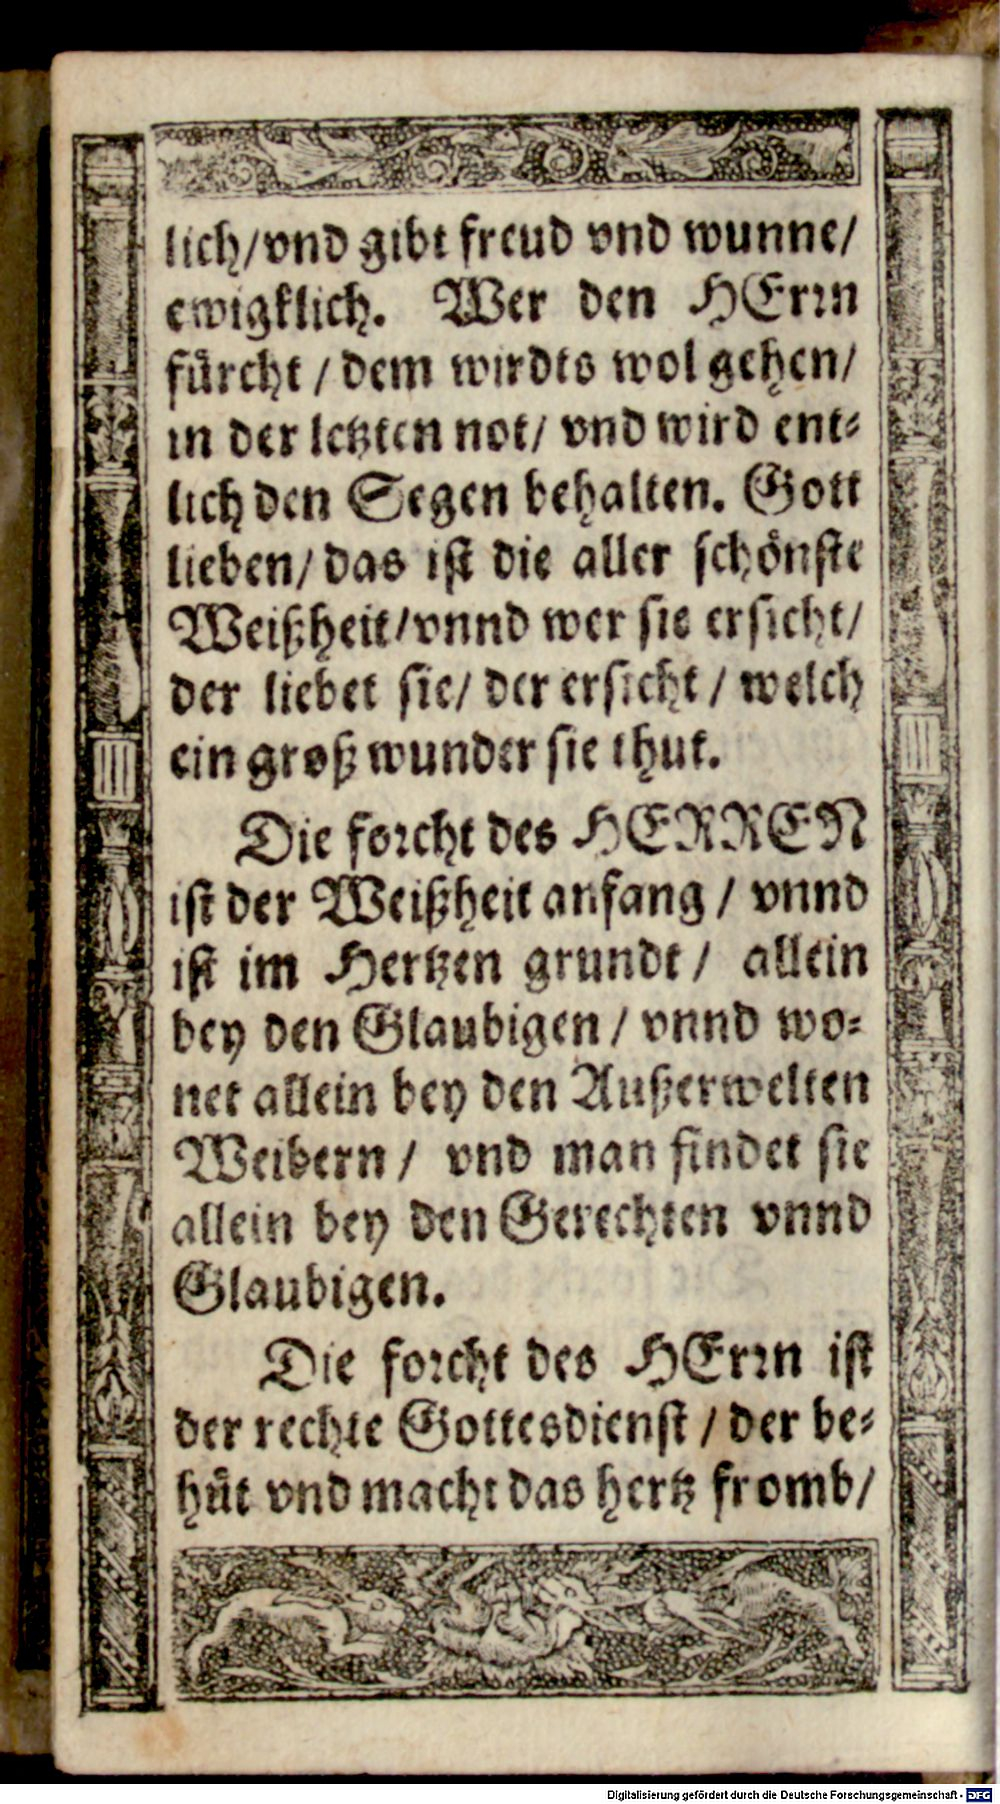 lich/vnd gibt freud vnd wunne/
ewigklich. Wer den HErrn
fürcht / dem wirdts wol gehen/
in der letzten not/ vnd wird ent-
lich den Segen behalten. Gott
lieben/ das ist die aller schönste
Weißheit/vnnd wer sie ersicht/
der liebet sie/ der ersicht / welch
ein groß wunder sie thut.
Die forcht des HERREN
ist der Weißheit anfang / vnnd
ist im Hertzen grundt / allein
bey den Glaubigen / vnnd wo-
net allein bey den Außerwelten
Weibern / vnd man findet sie
allein bey den Gerechten vnnd
Glaubigen.
Die forcht des HErrn ist
der rechte Gottesdienst / der be-
hüt vnd macht das hertz fromb/
Digitalisierung gefördert durch die Deutsche Forschungsgemeinschaft - DFG